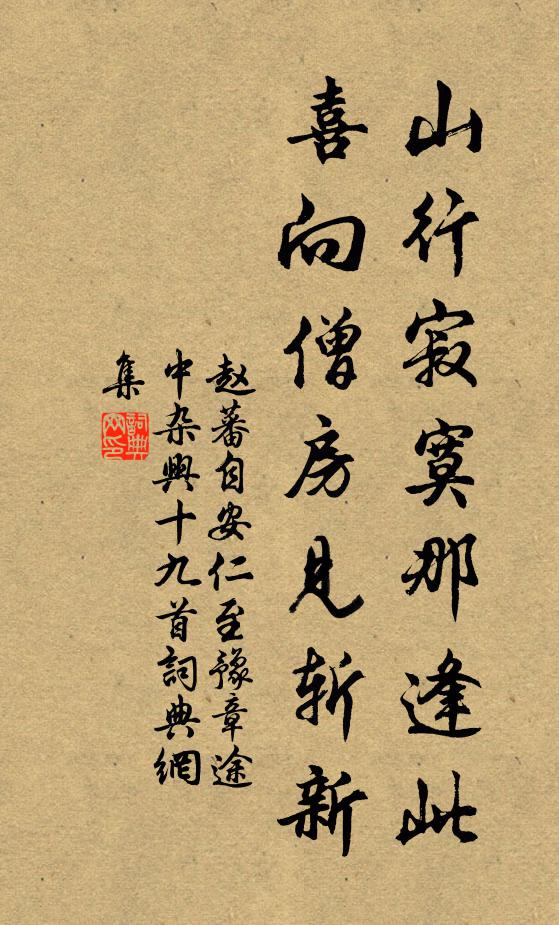 山行寂寞那逢此
喜向僧房見斬新
赵蕃自安仁至豫章途
中杂興十九首詞典網
集
詞典
网印